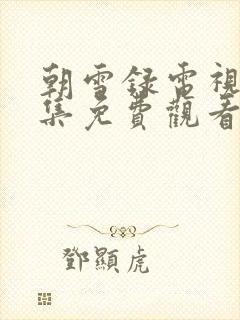 朝雪錄電視
集免費觀看
鄧顯虎